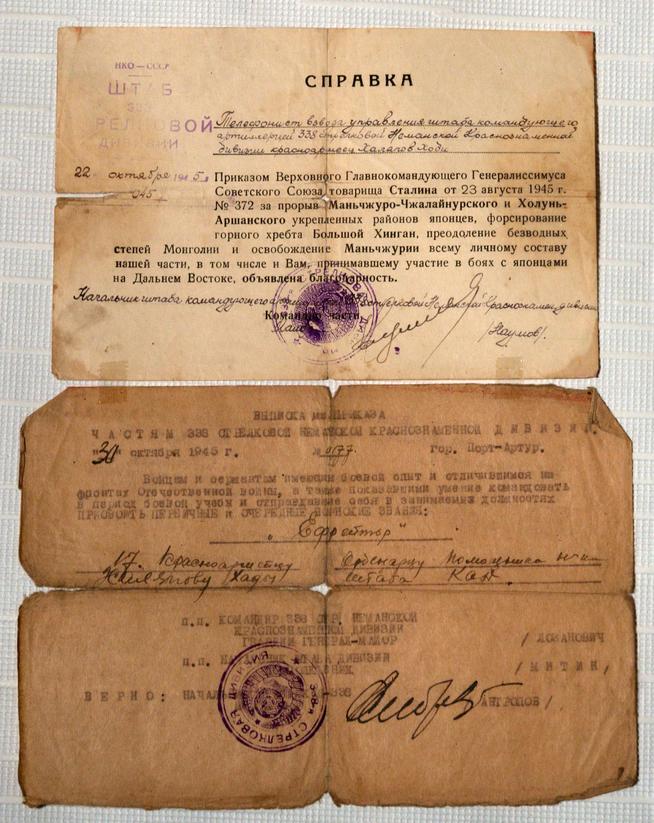 НКО — СССР
СПРАВКА
ШТАБ
338
СТРЕЛКОВОЙ
ДИВИЗИИ
Телефонист взвода управления штаба командующего
артиллерией 338 стрелковой Неманской Краснознаменной
дивизии красноармеец Халапов Ходи
22 октября 1945
Приказом Верховного Главнокомандующего Генералиссимуса
Советского Союза товарища Сталина от 23 августа 1945 г.
№ 372 за прорыв Маньчжуро-Чжалайнурского и Холунь-
Аршанского укрепленных районов японцев, форсирование
горного хребта Большой Хинган, преодоление безводных
степей Монголии и освобождение Маньчжурии всему личному составу
нашей части, в том числе и Вам, принимавшему участие в боях с японцами
на Дальнем Востоке, объявлена благодарность.
Начальник штаба командующего стрелковой Неманской Краснознамен. дивизии
Командир части
/Наумов/
ВЫПИСКА ПРИКАЗА
ЧАСТЯМ 338 СТРЕЛКОВОЙ НЕМАНСКОЙ КРАСНОЗНАМЕННОЙ ДИВИЗИИ.
"30" октября 1945 г. № 0177 гор. Порт-Артур.
Бойцам и сержантам имеющим боевой опыт и отличившимся на
фронтах Отечественной войны, а также показавшими умение командовать
в период боевой учебы и оправдавшие себя в занимаемых должностях
ПРИСВОИТЬ ПЕРВИЧНЫЕ и ОЧЕРЕДНЫЕ ВОИНСКИЕ ЗВАНИЯ:
"Ефрейтор"
17. Красноармейцу Ординарцу помощника н-ка
штаба
п.п. КОМАНДИР 338 СТР. НЕМАНСКОЙ
КРАСНОЗНАМЕННОЙ ДИВИЗИИ
ГВАРДИИ ГЕНЕРАЛ-МАЙОР / ЛОЗАНОВИЧ
п.п. НАЧАЛЬНИК ШТАБА ДИВИЗИИ
/ МИТИН,
ВЕРНО: НАЧАЛ 338 АНТРОПОВ /
СТРЕЛКОВАЯ ДИВИЗИЯ